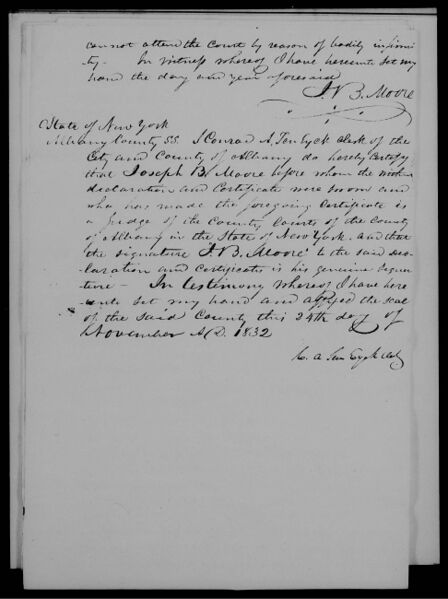 cannot attend the Court by reason of bodily infirmi
ty - In witness whereof I have hereunto set my
hand the day and year aforesaid
J. B. Moore
State of New York
Albany County SS. I Conrad A. Ten Eyck Clerk of the
City and County of Albany do hereby Certify
that Joseph B. Moore before whom the within
declaration and Certificate were sworn and
who has made the foregoing Certificate is
a Judge of the County Courts of the County
of Albany in the State of New York. and that
the signature J. B. Moore to the said dec
laration and Certificate is his genuine signa
ture - In testimony whereof I have here
unto set my hand and affixed the seal
of the said County this 24th day of
November A.D. 1832
C. A Ten Eyck